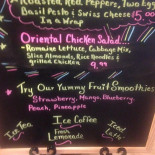 Roasted Red Peppers, Two Eggs
Basil Pesto & Swiss Cheese
In a Wrap 15.00
Oriental Chicken Salad
- Romaine Lettuce, Cabbage Mix,
Slice Almonds, Rice Noodles &
grilled Chicken 9.99
Try Our Yummy Fruit Smoothies
Strawberry, Mango, Blueberry,
Peach, Pineapple
Iced Tea
Ice Coffee
Fresh
Lemonade
Iced Latte